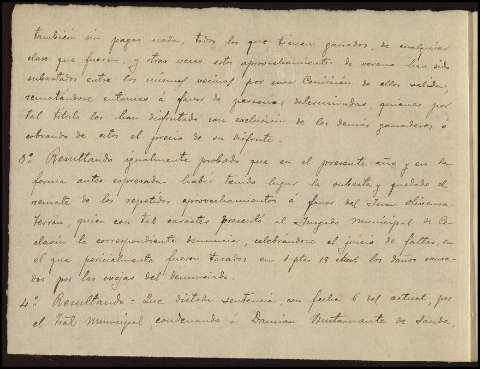 también sin pagar nada, todos los que tienen ganados, de cualquier
clase que fueren, y otras veces estos aprovechamientos de verano han sido
subastados entre los mismos vecinos por una Comisión de ellos salida,
rematándose entonces á favor de personas determinadas, quienes por
tal título los han disfrutado con exclusión de los demás ganaderos, ó
cobrando de estos el precio de su disfrute.
3º Resultando igualmente probado que en el presente año y en la
forma antes expresada habia tenido lugar la subasta y quedado el
remate de los repetidos aprovechamientos á favor del Juan
Terrán, quien con tal caracter presentó al Juzgado Municipal de
la correspondiente denuncia, celebrándose el juicio de faltas, en
el que pericialmente fueron tasados en 1 pta 15 los daños causa-
dos por las ovejas del denunciado.
4º Resultando = Que dictada sentencia, con fecha 6 del actual, por
el Tral Municipal condenando á Damian Bustamante de